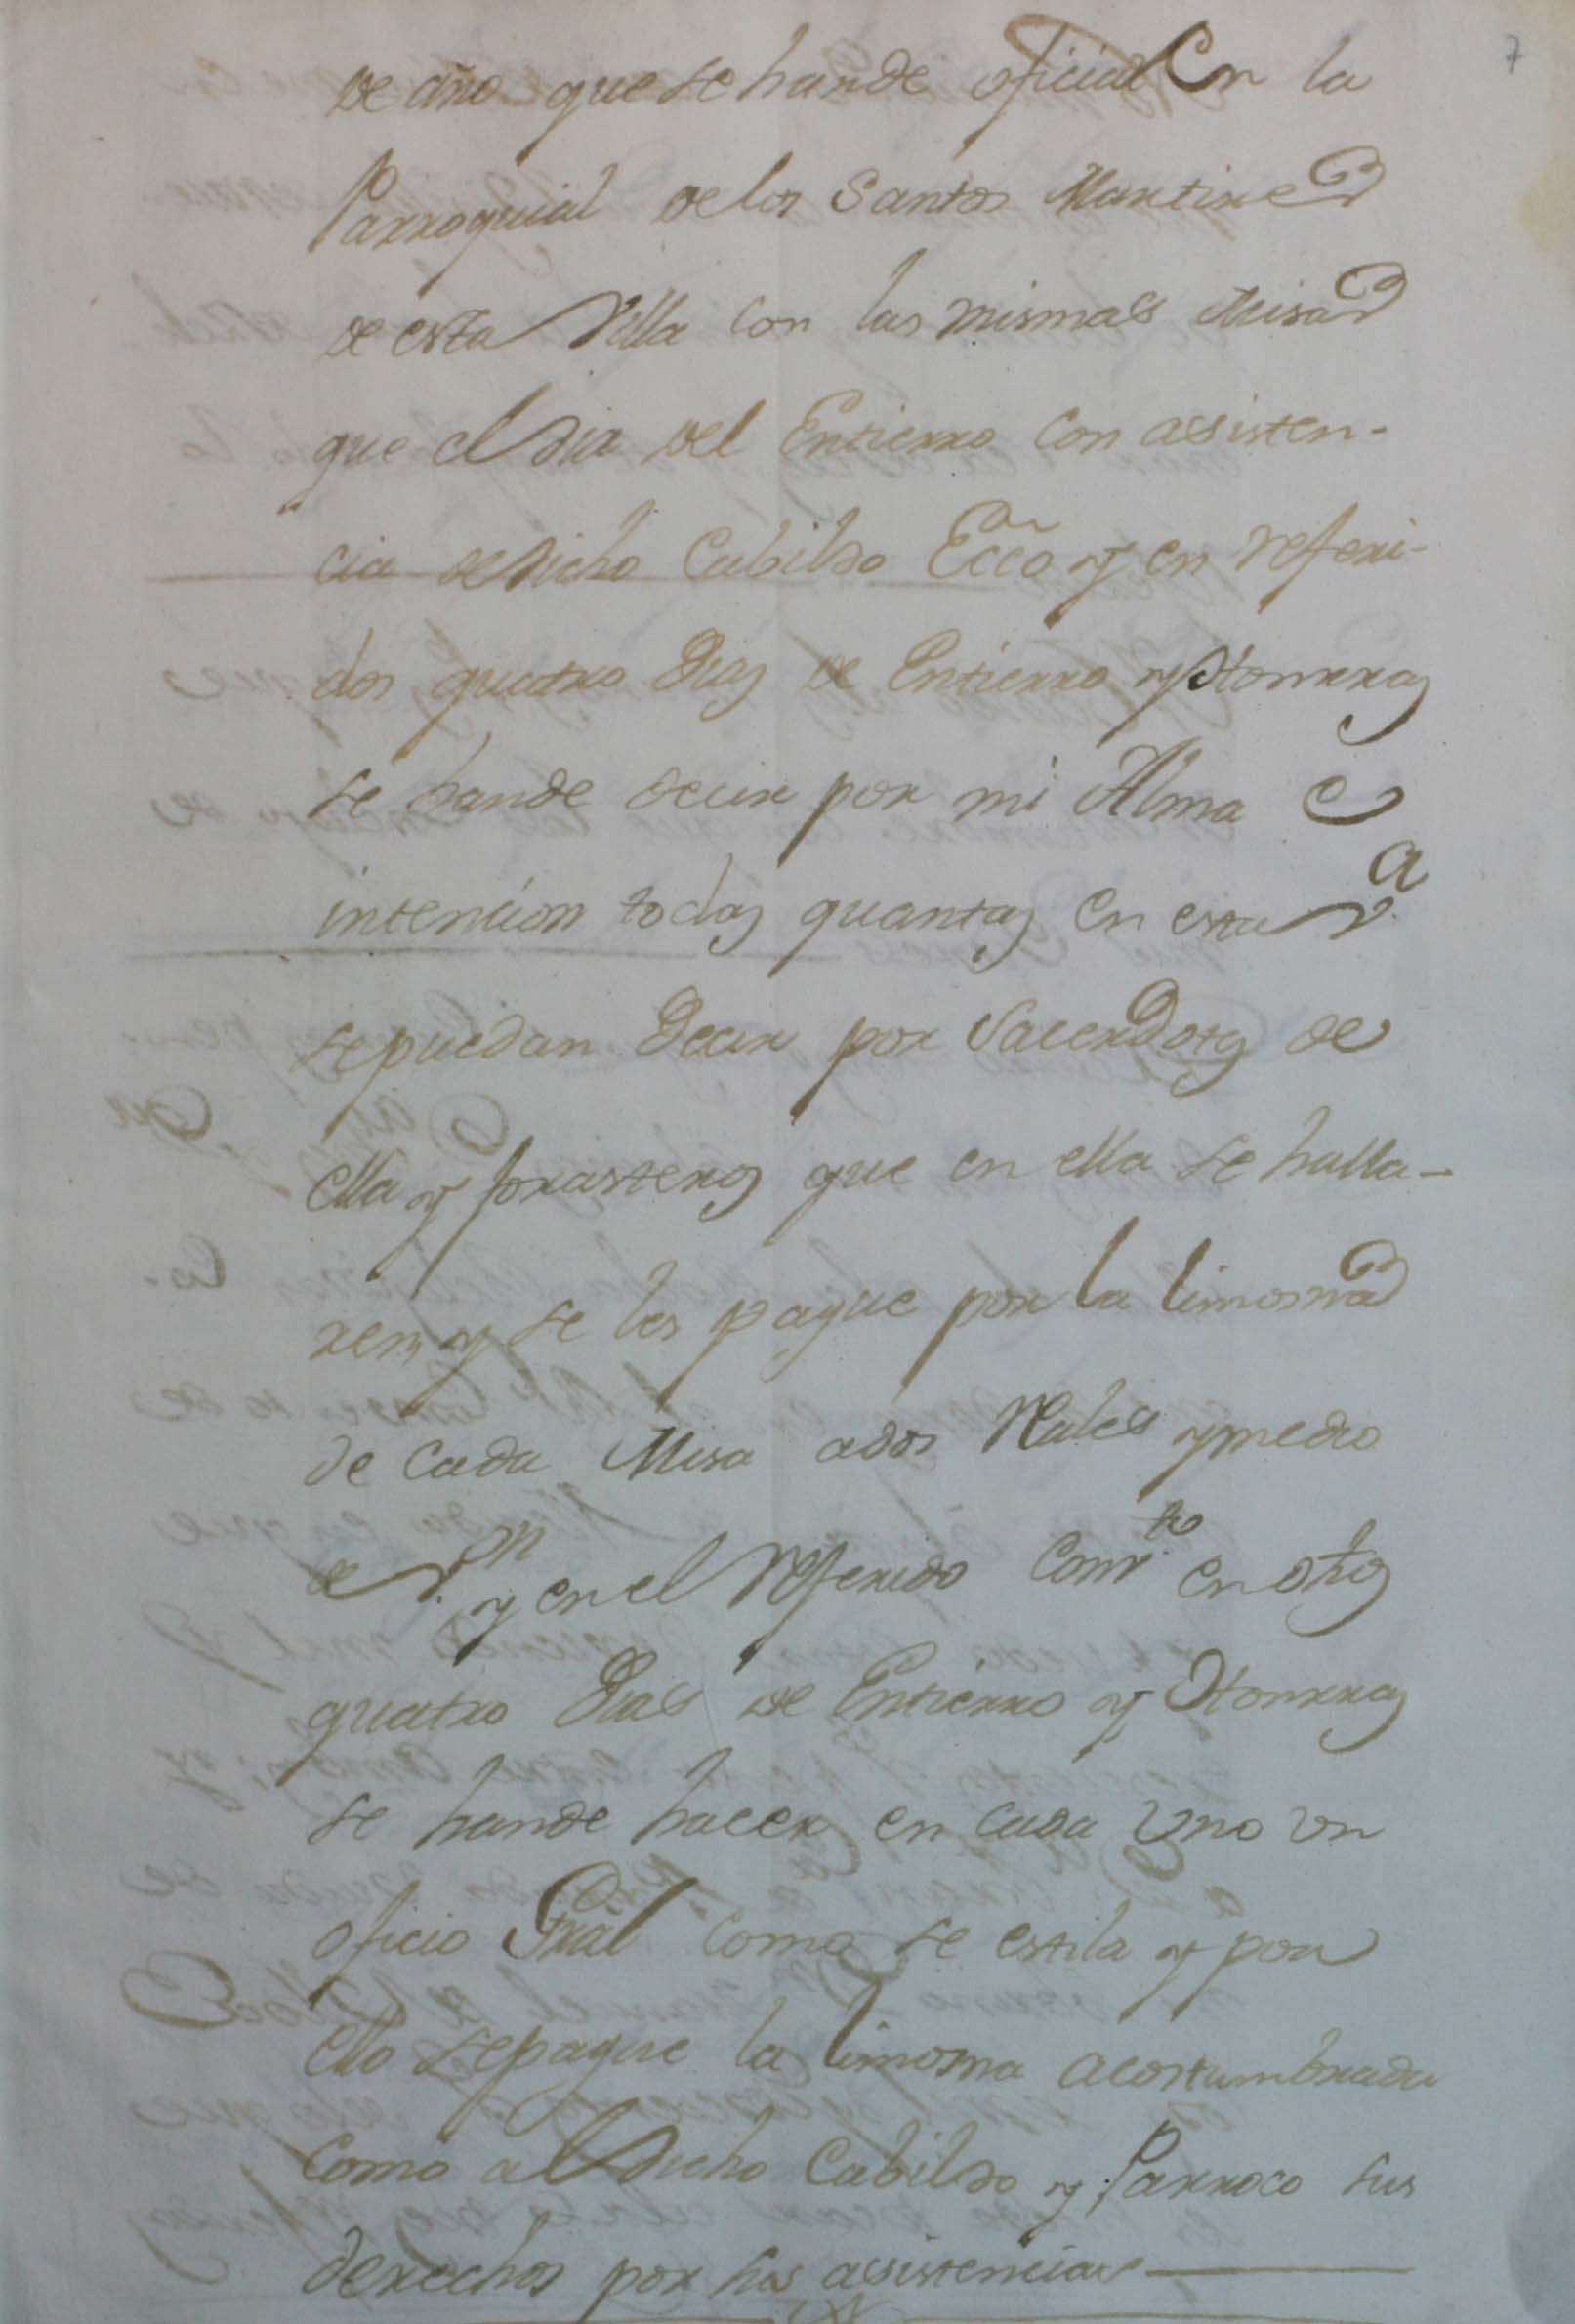 7
de año que se hande oficiar en la
Parroquial de los Santos Martires
de esta Villa con las mismas Misas
que el dia del Entierro con assisten-
cia de dicho Cabildo Ecco y en referi-
dos quatro Dias de Entierro y Honrras
se hande decir por mi Alma e
intencion todas quantas en esta Va
se puedan Decir por Sacerdotes de
ella y forasteros que en ella se halla-
ren, y se les pague por la limosna
de cada Misa a dos Reales y medio
de Vn y en el referido Convto en dhos
quatro Dias de Entierro y Honrras
se hande hacer en cada Vno vn
oficio Gral como se estila y por
ello se pague la limosna acostumbrada
como al dicho Cabildo y Parroco sus
derechos por sus assistencias